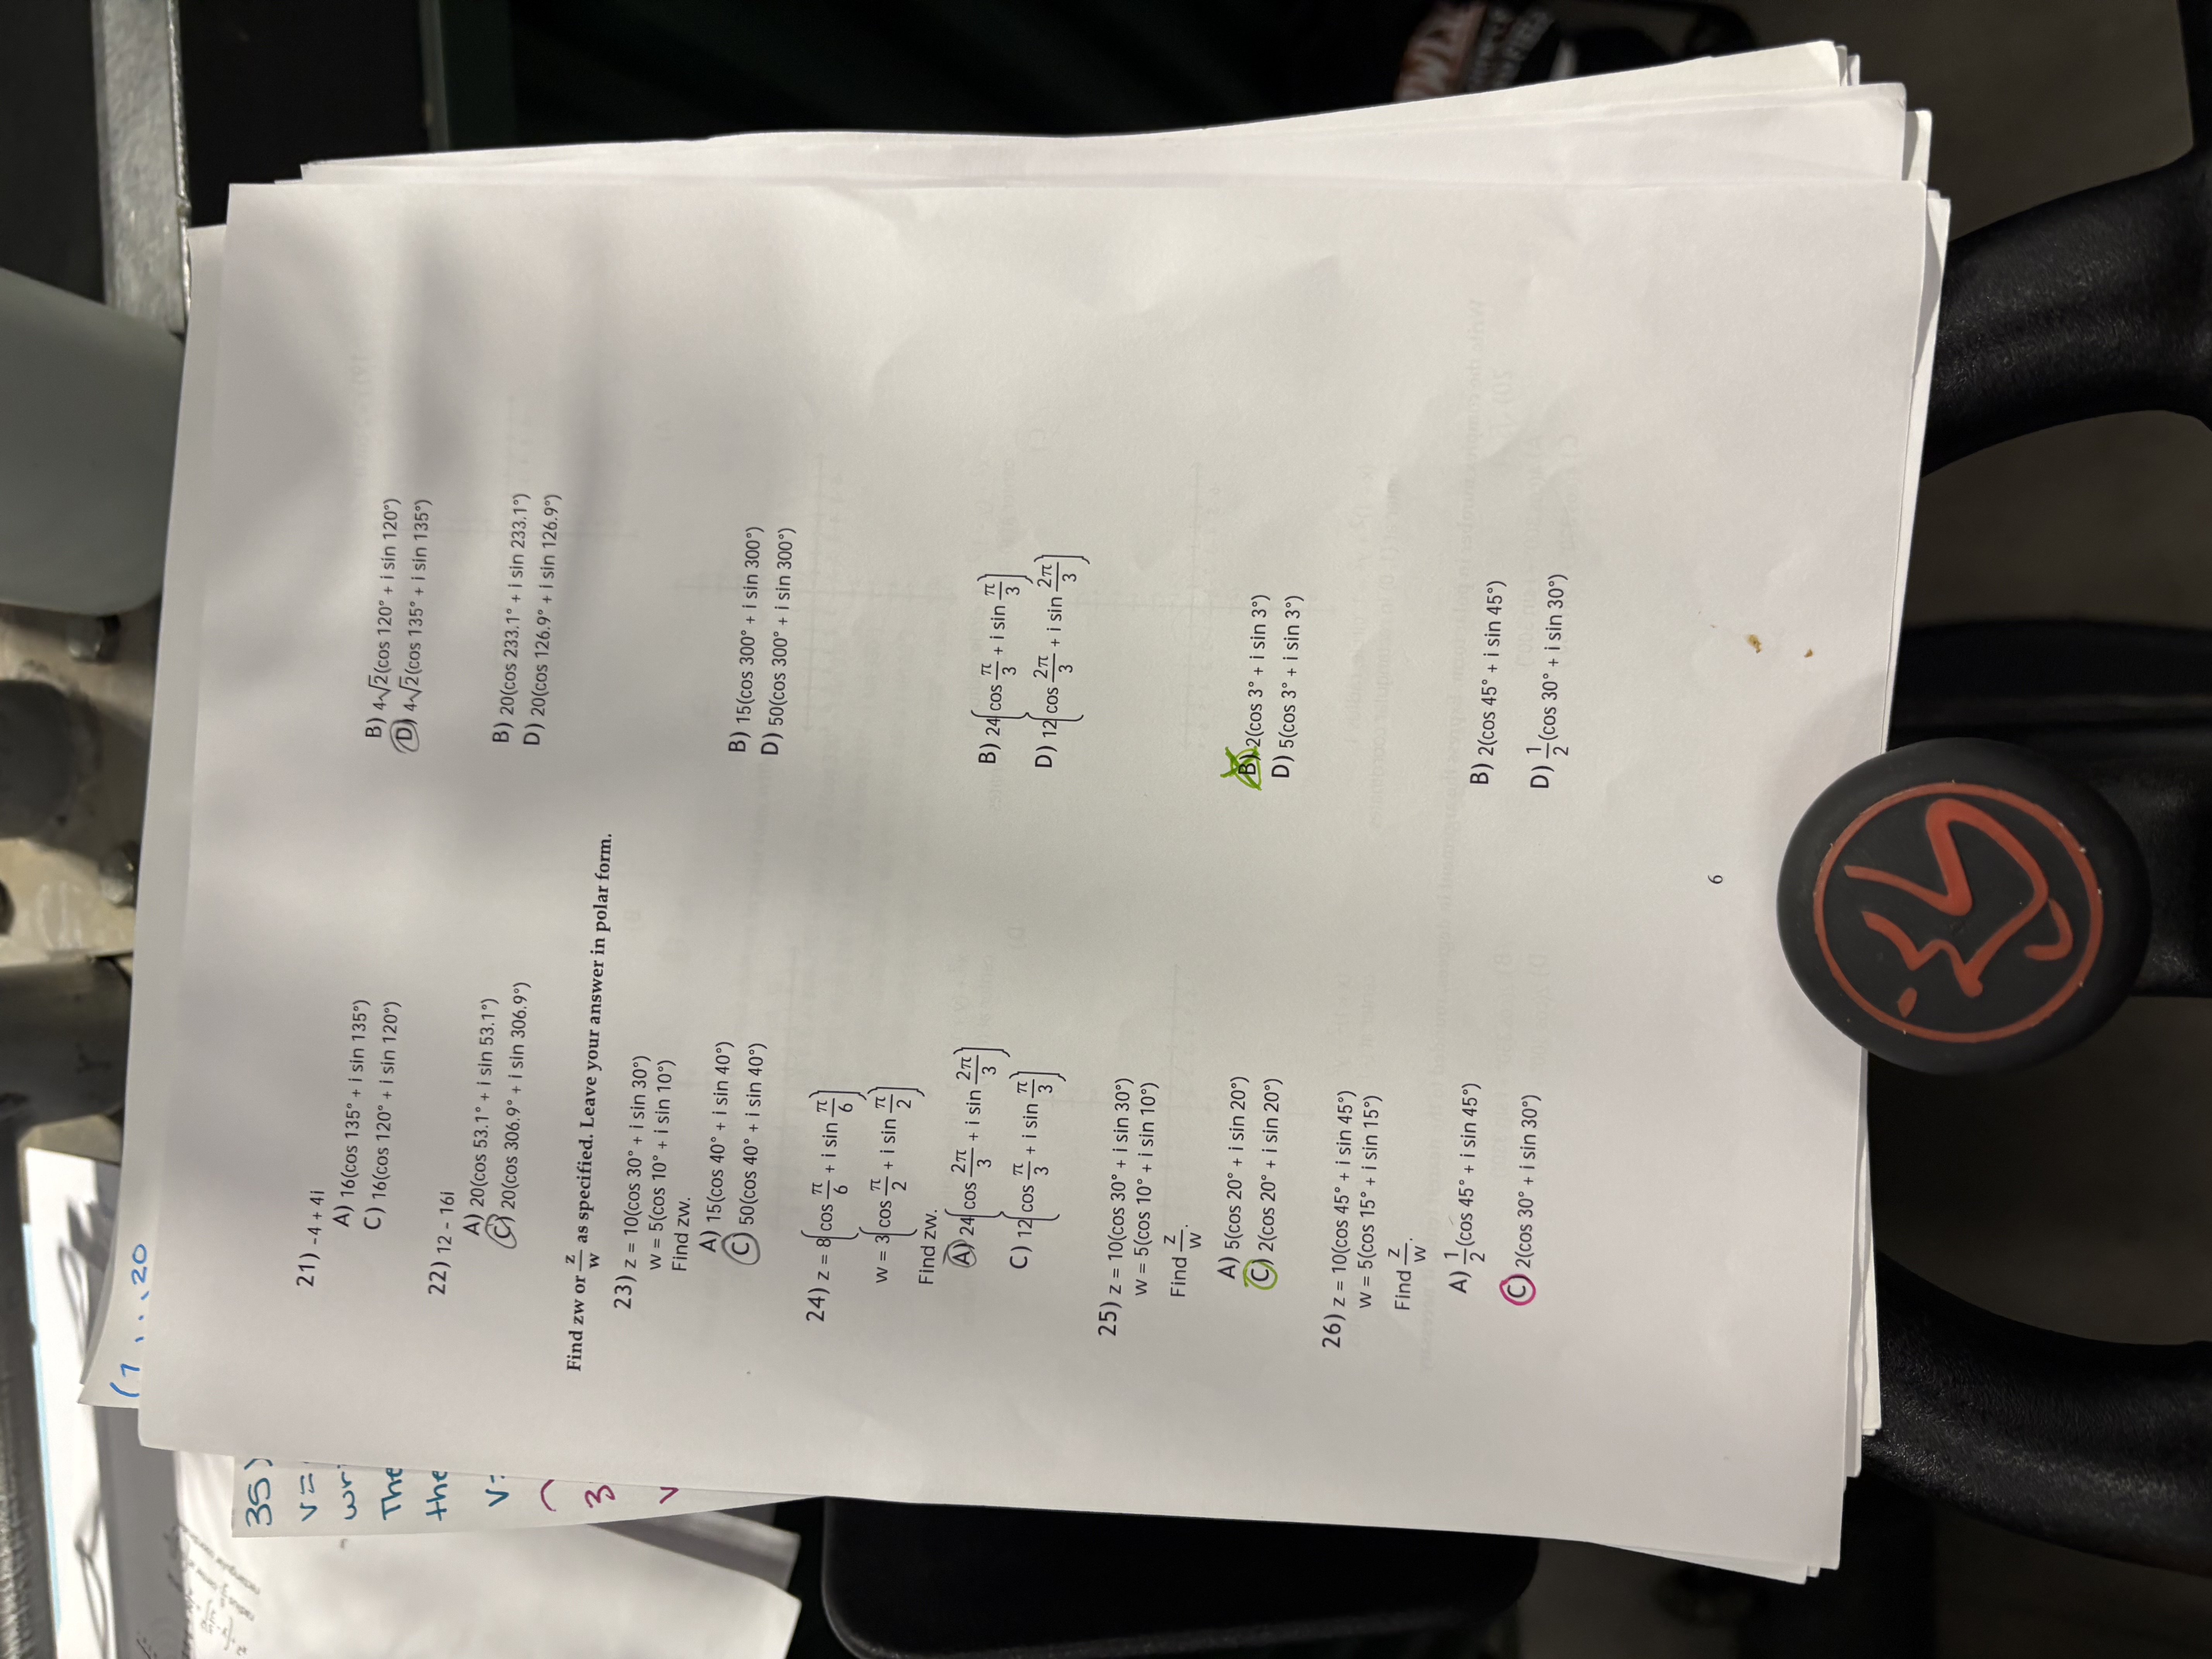 (7 . . . 20
21) -4 + 4i
A) 16(cos 135° + i sin 135°)
B) 4√2(cos 120° + i sin 120°)
C) 16(cos 120° + i sin 120°)
D) 4√2(cos 135° + i sin 135°)
22) 12 - 16i
A) 20(cos 53.1° + i sin 53.1°)
B) 20(cos 233.1° + i sin 233.1°)
C) 20(cos 306.9° + i sin 306.9°)
D) 20(cos 126.9° + i sin 126.9°)
Find zw or z/w as specified. Leave your answer in polar form.
23) z = 10(cos 30° + i sin 30°)
w = 5(cos 10° + i sin 10°)
Find zw.
A) 15(cos 40° + i sin 40°)
B) 15(cos 300° + i sin 300°)
C) 50(cos 40° + i sin 40°)
D) 50(cos 300° + i sin 300°)
24) z = 8(cos π/6 + i sin π/6)
w = 3(cos π/2 + i sin π/2)
Find zw.
A) 24(cos 2π/3 + i sin 2π/3)
B) 24(cos π/3 + i sin π/3)
C) 12(cos π/3 + i sin π/3)
D) 12(cos 2π/3 + i sin 2π/3)
25) z = 10(cos 30° + i sin 30°)
w = 5(cos 10° + i sin 10°)
Find z/w.
A) 5(cos 20° + i sin 20°)
B) 2(cos 3° + i sin 3°)
C) 2(cos 20° + i sin 20°)
D) 5(cos 3° + i sin 3°)
26) z = 10(cos 45° + i sin 45°)
w = 5(cos 15° + i sin 15°)
Find z/w.
A) 1/2(cos 45° + i sin 45°)
B) 2(cos 45° + i sin 45°)
C) 2(cos 30° + i sin 30°)
D) 1/2(cos 30° + i sin 30°)
6
35)
v=
wr
The
the
v=
3
v